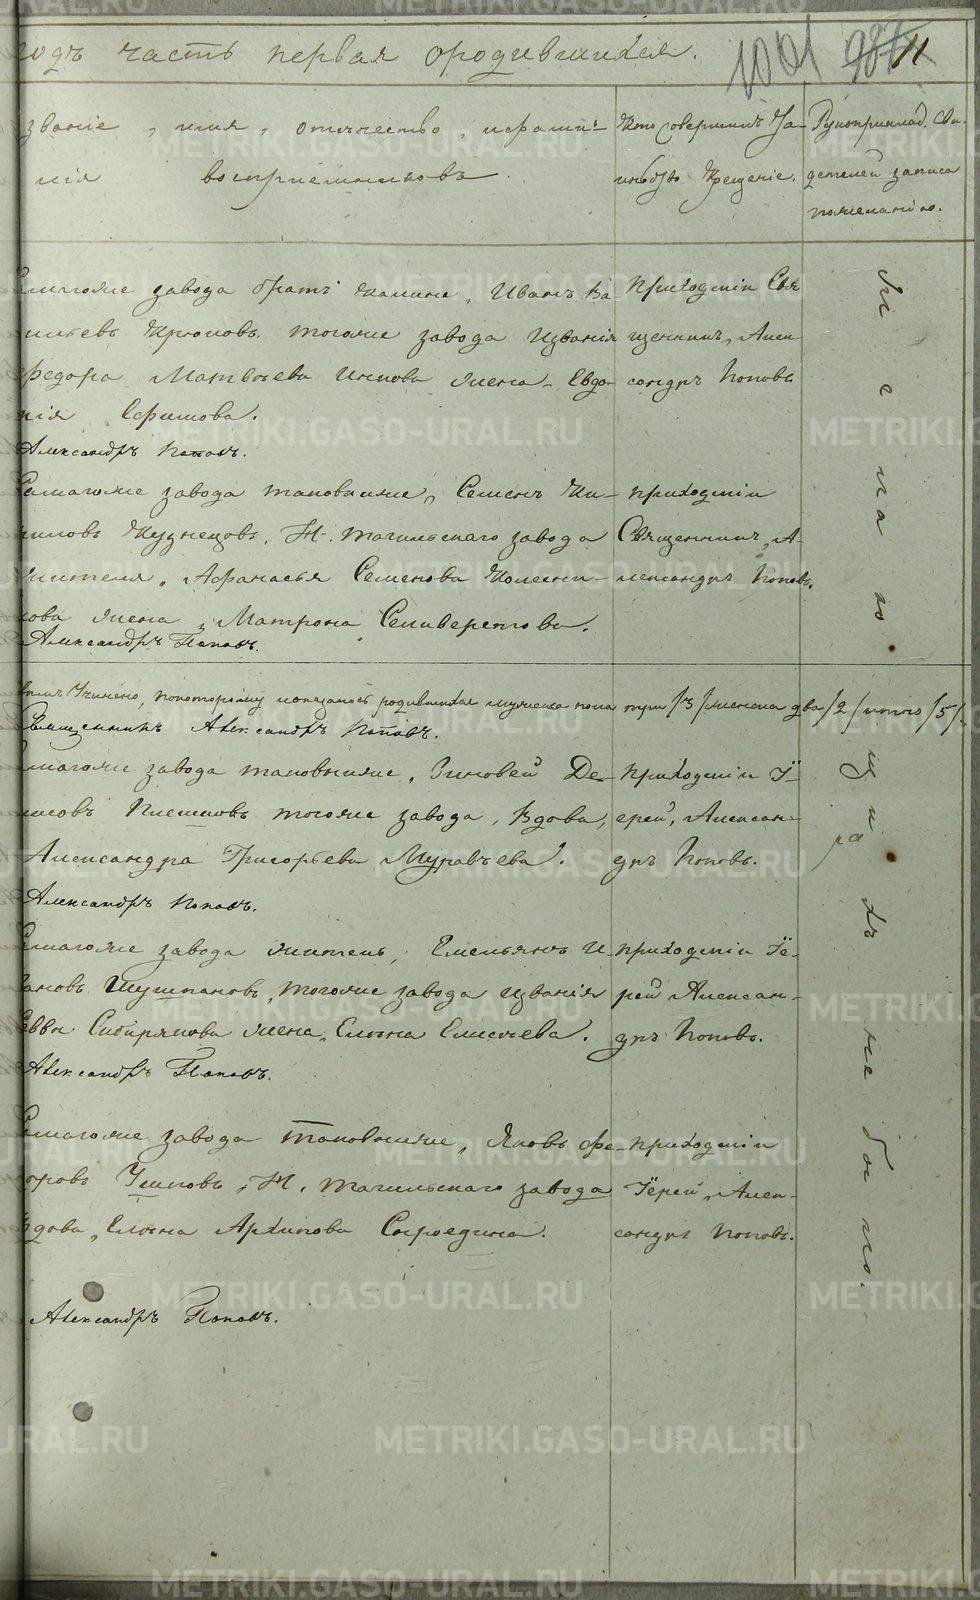 годъ часть первая ородившихся.
1001 987 11
звание, имя, отчество, ифамил-
лія воспріемниковъ.
Кто совершилъ Та-
инство Крещенія.
Рукоприклад. Сви-
детелей записи
пожеланію.
завода братъ Иванъ Ва-
сильевъ Крюковъ, тогоже завода
Федора Матвѣева жена Евдо-
кія Ефимова.
Александръ Поповъ.
Приходскій Свя
щенникъ, Алек-
сандръ Поповъ
тогоже завода таковыиже, Семенъ Ки-
риловъ Кузнецовъ, Н. Тагильскаго завода
жителя, Афанасья Семенова Колесни-
кова жена, Матрона Селиверстова.
Александръ Поповъ.
приходскій
Священникъ, А-
лександръ Поповъ.
родившихся мужеска пола три /3/ женска два /2/ итого /5/.
Священникъ Александръ Поповъ.
тогоже завода таковыиже, Зиновей Де-
нисовъ Плешковъ тогоже завода, Вдова,
Александра Григорьева Муравьева.
Александръ Поповъ.
приходскій І-
ерей, Алексан-
дръ Поповъ.
тогоже завода житель, Емельянъ И-
вановъ Шушпановъ, тогоже завода
Саввы Сибирякова жена, Елена Елисеева.
Александръ Поповъ.
приходскій Іе-
рей Алексан-
дръ Поповъ.
тогоже завода таковыиже, Яковъ Фе-
доровъ Ушковъ, Н. Тагильскаго завода
вдова, Елена Архипова Сыроедина.
Александръ Поповъ.
приходскій
Іерей, Алек-
сандръ Поповъ.
не было.
METRIKI.GASO-URAL.RU